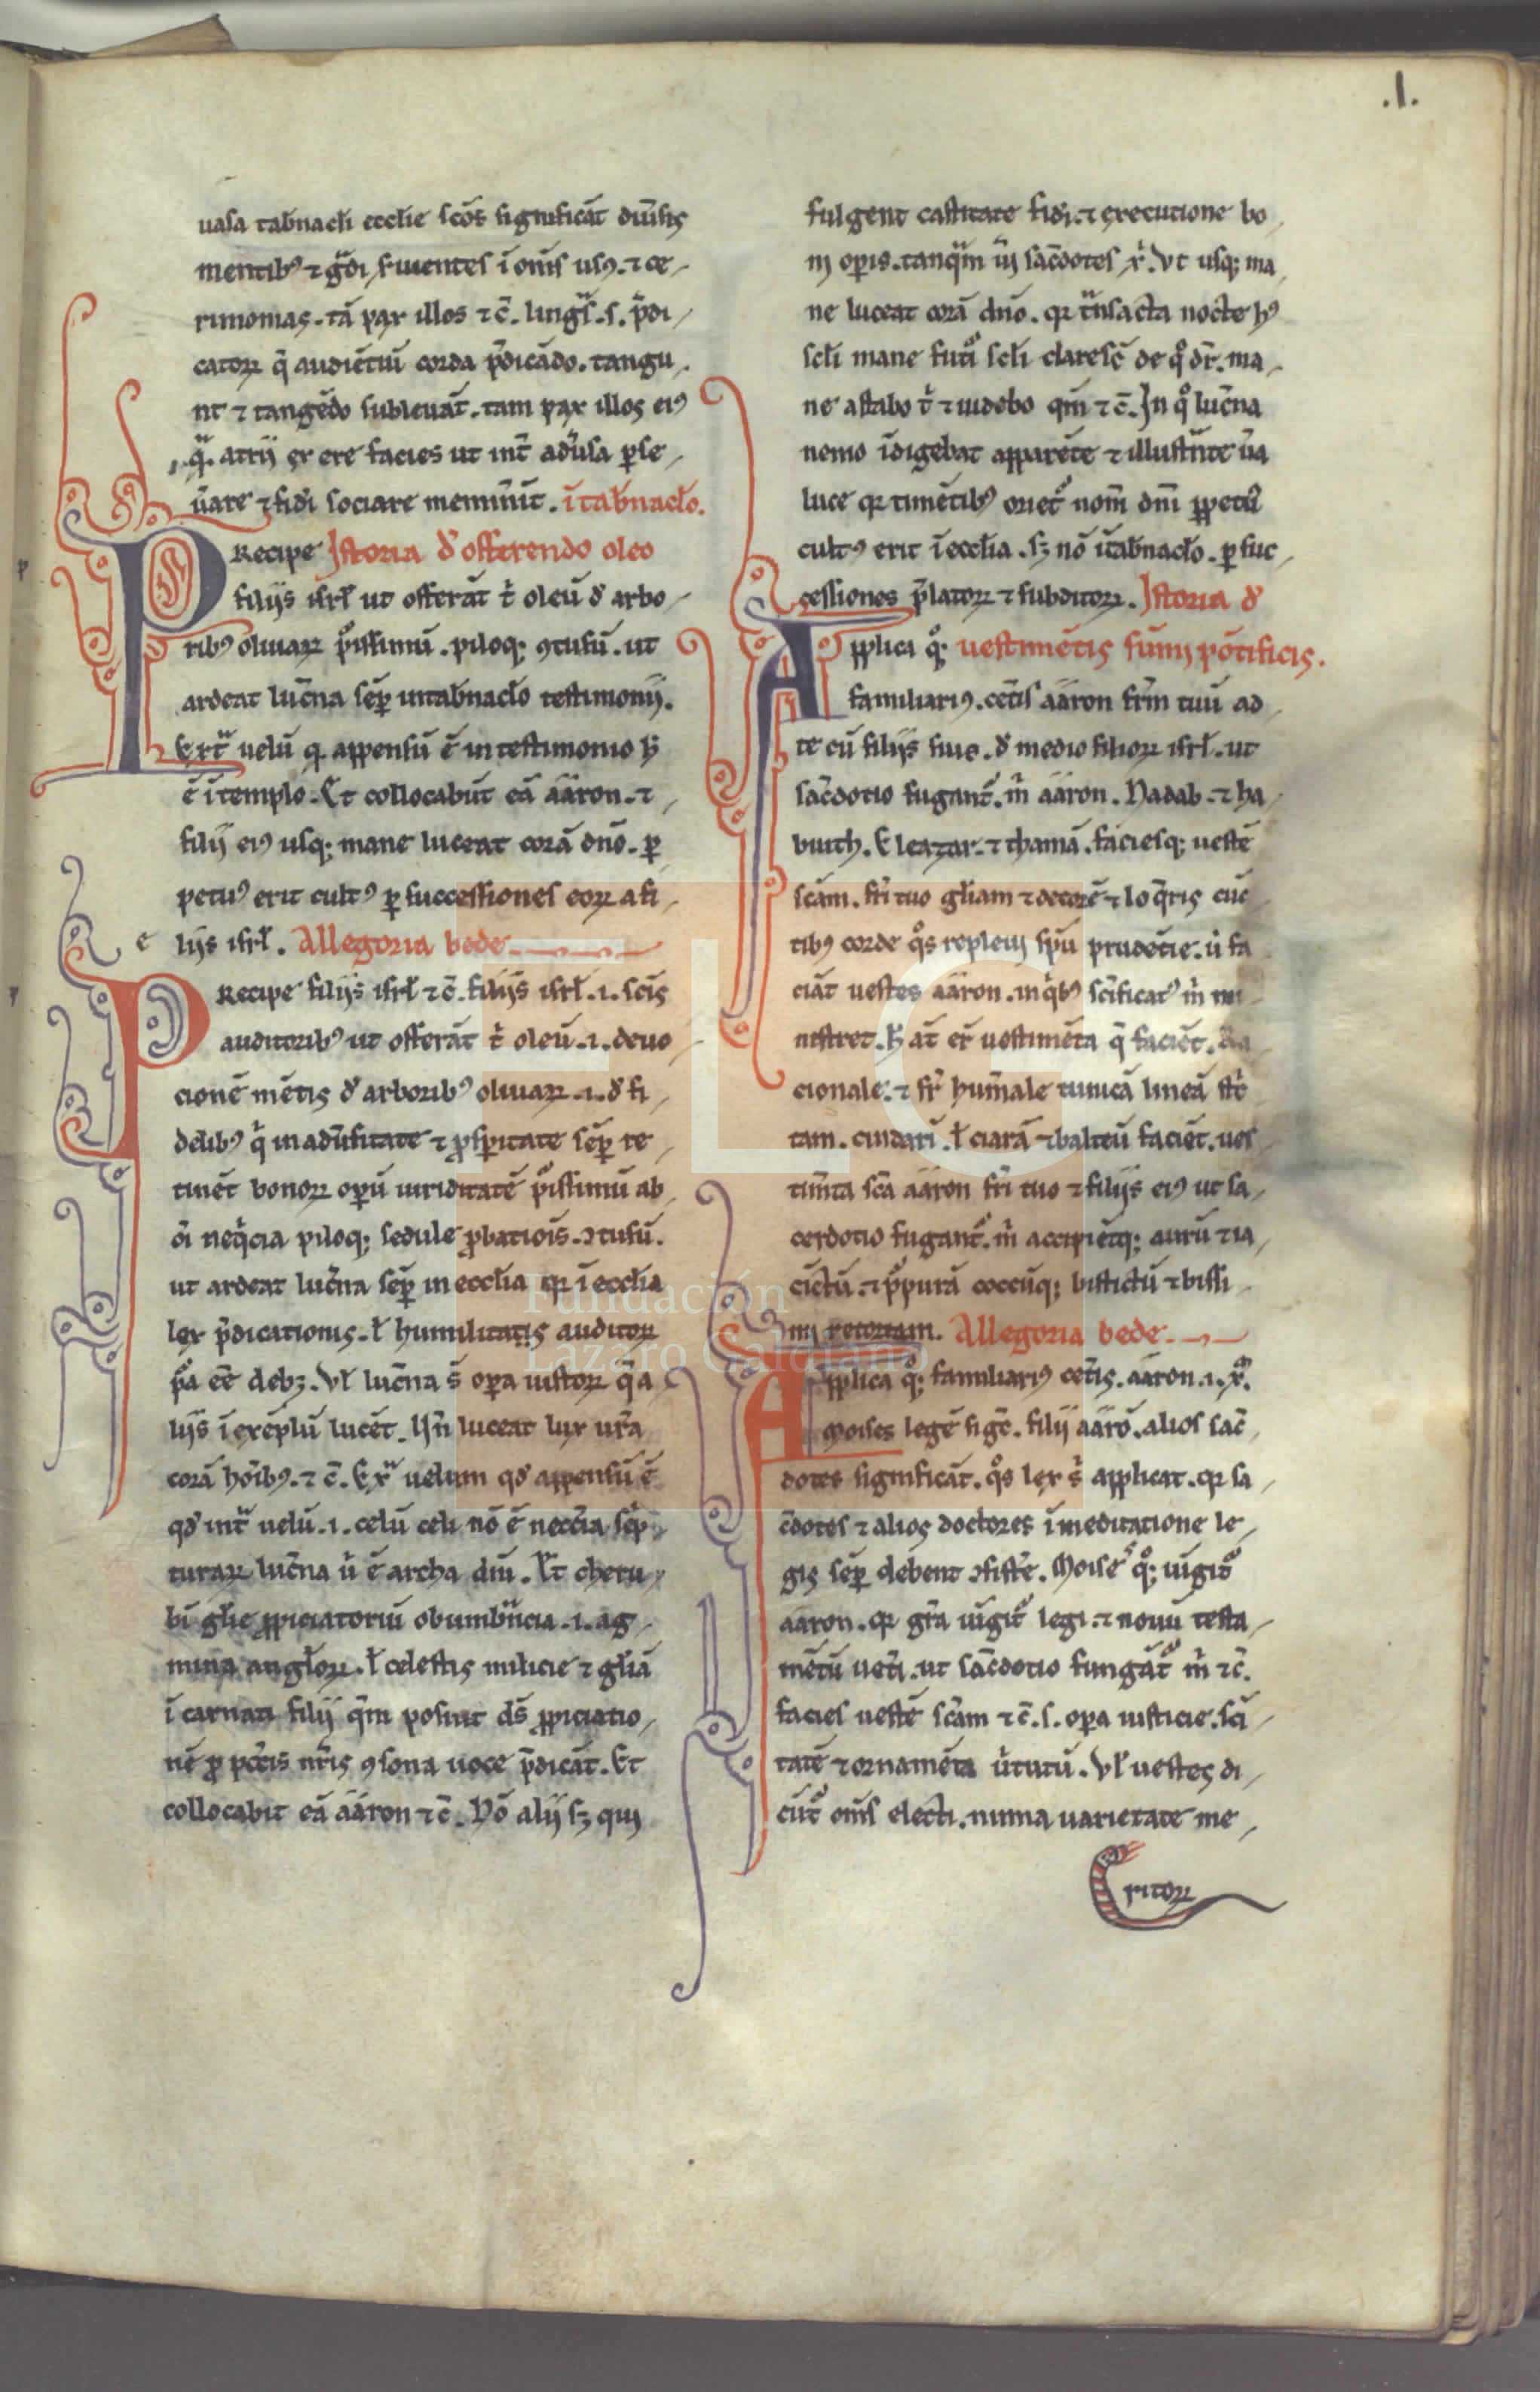 .l.
uasa tab̄nacli ecclie scōꝝ significāt diūsis
mentibꝰ ⁊ g̊di suientes ī oīms usꝰ. ⁊ ce
rimonias. tā pax illos ⁊ c̄. lingͣs. s. p̄di
catoꝝ q̄ audiētiū corda p̄dicādo. tangu
nt ⁊ tangēdo subleuāt. tam pax illos eiꝰ
qͣ. atrii ex ere facies ut int̄ adūsa ꝑse
ūare ⁊ fidi sociare meminīt. ī tab̄naclo.
Precipe Istoria đ offerendo oleo
filiis isrl̄ ut offerāt t̉ oleū đ arbo
ribꝰ oliuaꝝ p̉issimū. piloqꝫ ꝯtusū. ut
ardeat luc̄na sēꝑ in tab̄naclo testimonii.
Extͣ uelū qͥ appensū ē in testimonio h̄
ē ī templo. Et collocabūt eā ááron. ⁊
filii eiꝰ usqꝫ mane luceat corā dnō. ꝑ
petuꝰ erit cultꝰ ꝑ successiones eoꝝ a fi
liis isrl̄. Allegoria bede
Precipe filiis isrl̄ ⁊ c̄. filiis isrl̄ .i. scīs
auditoribꝰ ut offerāt t̉ oleū .i. deuo
cionē mētis đ arboribꝰ oliuaꝝ .i. đ fi
delibꝰ qͥ in adūsitate ⁊ ꝓsꝑitate sēꝑ re
tinēt bonoꝝ oꝑū uiriditatē p̉issimū ab
oī neqͥcia piloqꝫ sedule ꝓbatiōis ꝯtusū.
ut ardeat luc̄na sēꝑ in ecclia qꝛ ī ecclia
lex p̄dicationis. ł humilitatis auditoꝝ
p̊a eē debꝫ. Vł luc̄na s̄ oꝑa iustoꝝ q̄ a
liis ī exēplū lucēt. Hīn luceat lux ur̄a
corā hōibꝰ. ⁊ c̄. Exͣ uelum qđ appensū ē
qđ int̄ uelū .i. celū celi nō ē nec̄cia sc̉p
turaꝝ luc̄na ū ē archa diū. Et cheru
bī gl̄ie ꝓpiciatoriū obumb̄ncia .i. ag
mina angl̄oꝝ. ł celestis milicie ⁊ gl̄iā
ī carnati filii q̄m posuit ds̄ ꝓpiciatio
nē ꝓ pccīs nr̄is ꝯsona uoce p̄dicāt. Et
collocabit eā ááron ⁊ c̄. Nō alii sꝫ qui
fulgent castitate fidi. ⁊ executione bo
ni oꝑis. tanqͣm ūi sac̄dotes xͥ. Vt usqꝫ ma
ne luceat corā dnō. qꝛ tͣnsacta nocte hꝰ
scl̄i mane futͥ scl̄i claresc̄ de qͦ dr̄. ma
ne astabo t̉ ⁊ uidebo qm̄ ⁊ c̄. In qͦ luc̄na
nemo īdigebat apparēte ⁊ illustͣnte ūa
luce qꝛ timētibꝰ oriet̉ nom̄ dnī ꝑpetuꝰ
cultꝰ erit ī ecclia. sꝫ nō ī tab̄naclo. ꝑ suc
cessiones p̄latoꝝ ⁊ subditoꝝ. Istoria đ
Applica qͦꝫ uestimētis sūmi pōtificis.
familiariꝰ. cet̄is ááron fr̄m tuū ad
te cū filiis suis. đ medio filioꝝ isrl̄. ut
sac̄dotio fugant̉ m̉ ááron. Nadab. ⁊ ha
biuth. Eleazar. ⁊ thamā. faciesqꝫ uestē
scām. fr̄i tuo gl̄iam ⁊ decorē ⁊ loq̄ris cūc
tibꝰ corde qͦs repleui spū prudētie. ū fa
ciāt uestes ááron. in qͥbꝰ sc̄ificatꝰ m̉ mi
nistret. H̄ āt er̄ uestimēta q̄ faciēt. Ra
cionale. ⁊ sr̄ hum̄ale tunicā lineā str̄c
tam. cindarī. ł ciarā ⁊ balteū faciēt. ues
tim̄ta scā ááron fr̄i tuo ⁊ filiis eiꝰ ut sa
cerdotio fugant̉ m̉ accipiētqꝫ aurū ⁊ ia
cictū. ⁊ p̉purā coccūqꝫ bistictū ⁊ bissi
ni retortam. Allegoria bede
Applica qͦꝫ familiariꝰ cet̄is. ááron .i. xͦ.
Moises legē sigt̄. filii ááro. alios sac̄
dotes significāt. qͦs lex s̉ applicat. qꝛ sa
c̄dotes ⁊ alios doctores ī meditatione le
gis sēꝑ debent ꝯsiste. Moises̉ qͦꝫ uīgit̉
aaron. qꝛ gr̄a uīgit̉ legi. ⁊ nouū testa
mētū uet̄i. ut sac̄dotio fungāt̉ m̉ ⁊c̄.
facies uestē sc̄am ⁊ c̄. s. oꝑa iusticie. sci
tatē ⁊ ornamēta ūtutū. Vł uestes di
cūt̉ oīms electi. nimia uarietate me
ritoꝝ